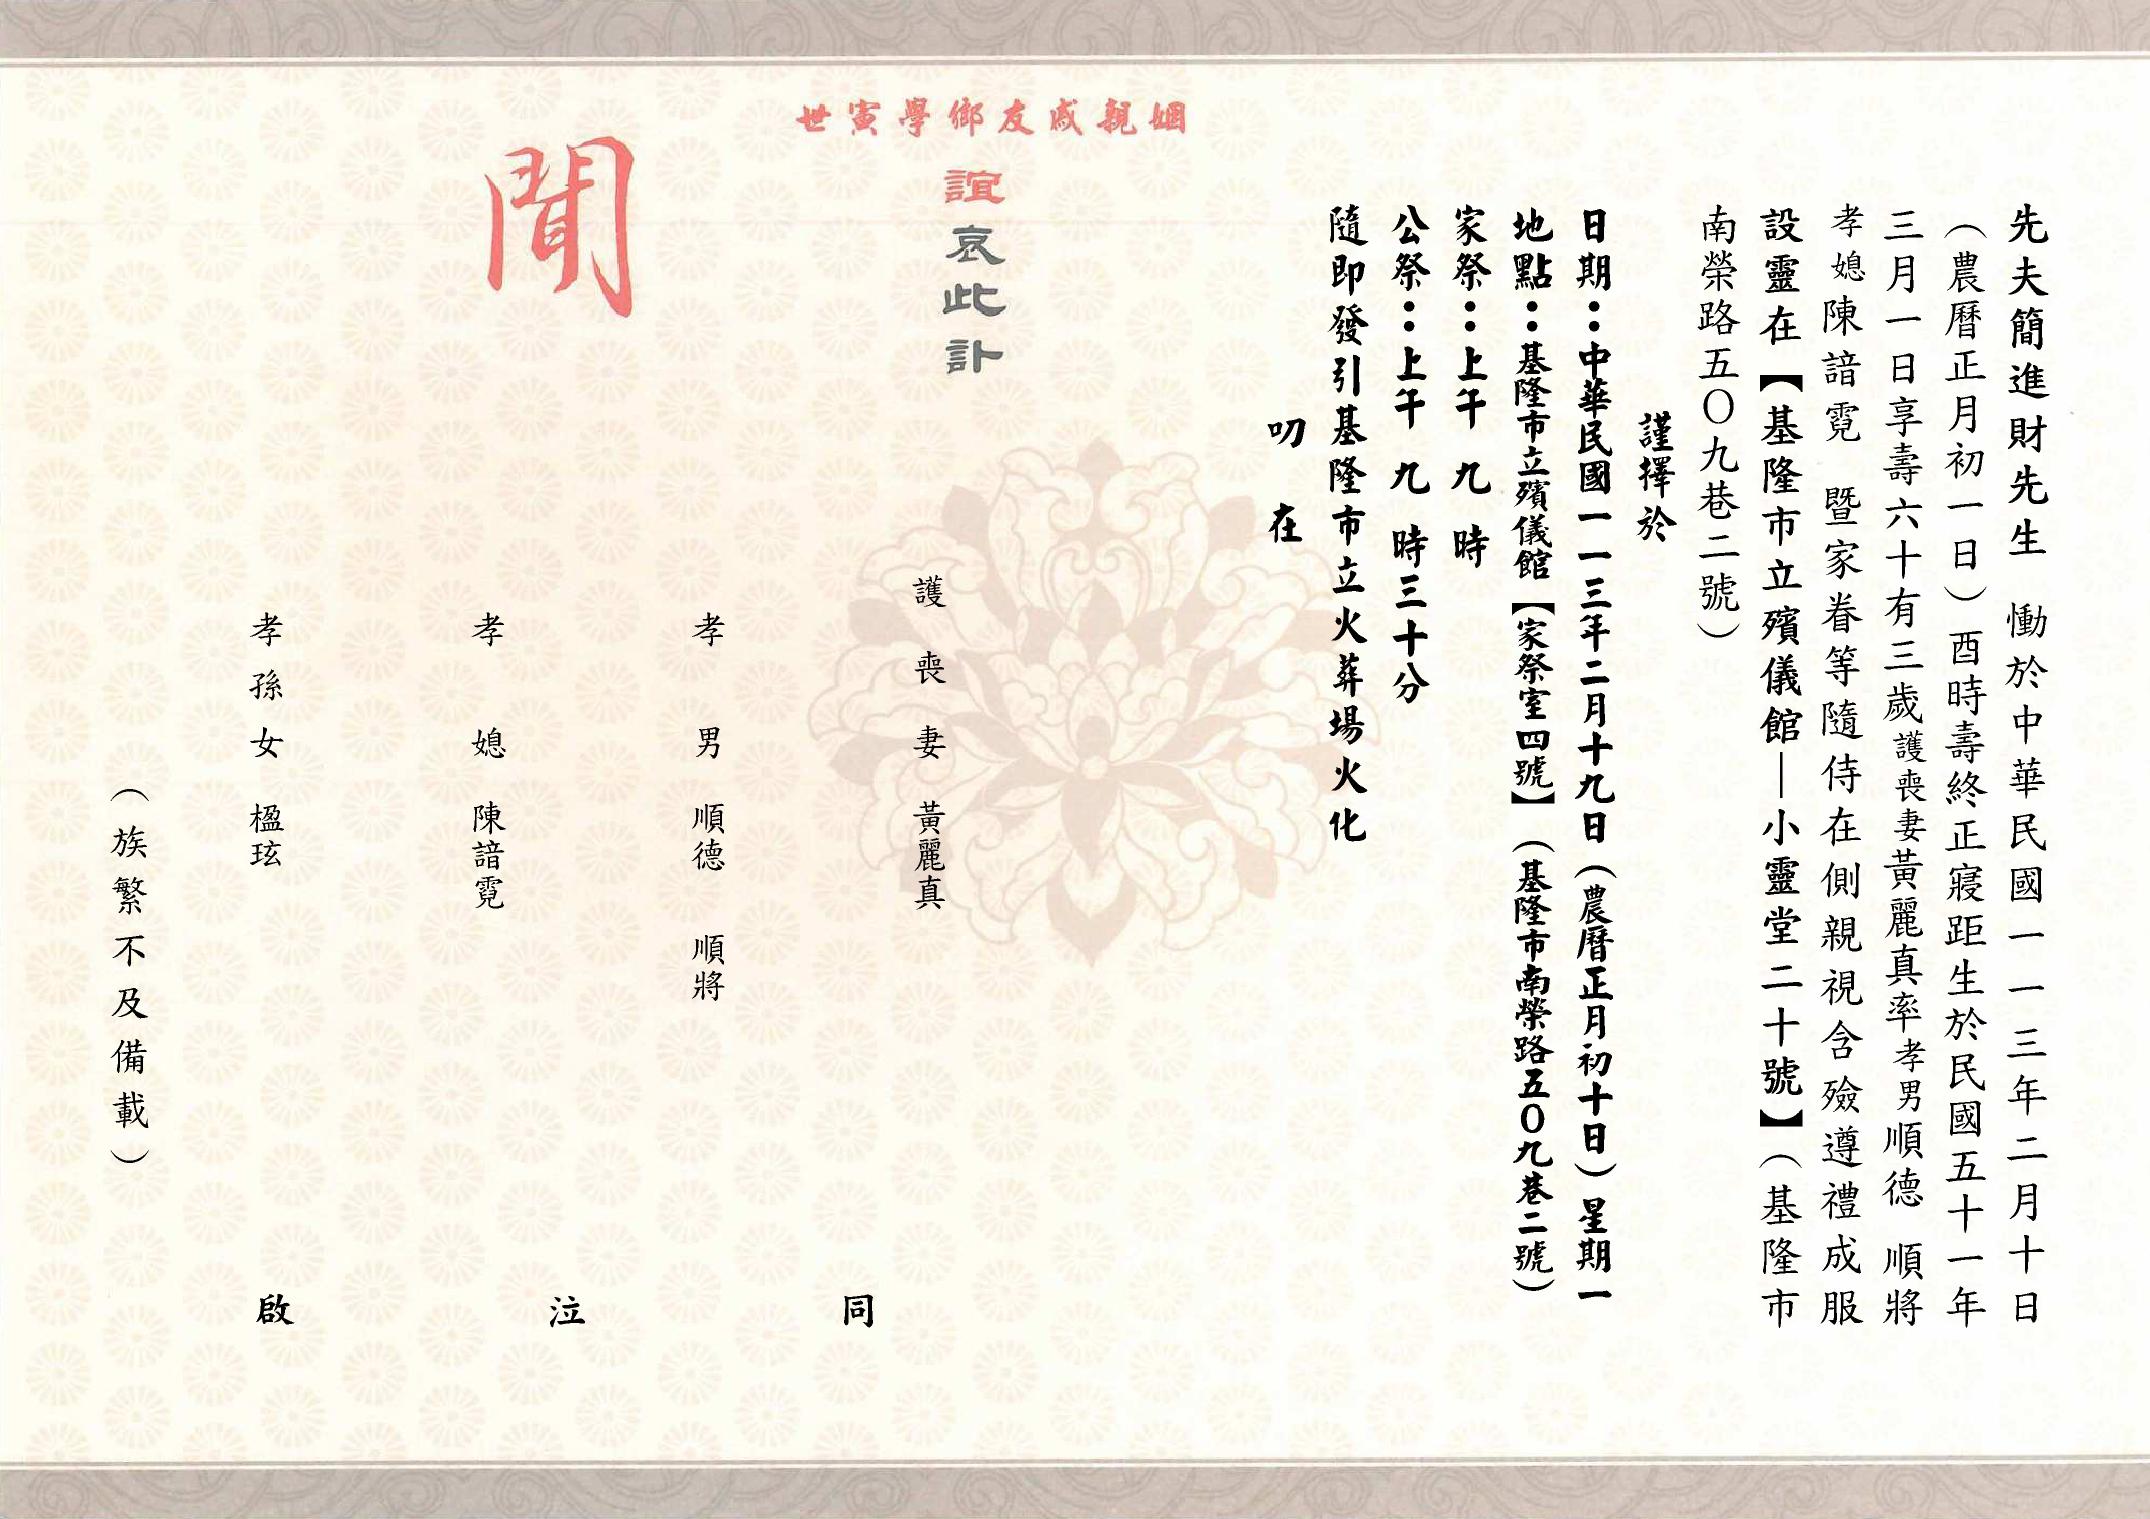 先夫簡進財先生　慟於中華民國一一三年二月十日
（農曆正月初一日）酉時壽終正寢距生於民國五十一年
三月一日享壽六十有三歲護喪妻黃麗真率孝男順德　順將
孝媳陳諳霓　暨家眷等隨侍在側親視含殮遵禮成服
設靈在【基隆市立殯儀館—小靈堂二十號】（基隆市
南榮路五〇九巷二號）
謹擇於
日期：中華民國一一三年二月十九日（農曆正月初十日）星期一
地點：基隆市立殯儀館【家祭室四號】（基隆市南榮路五〇九巷二號）
家祭：上午　九　時
公祭：上午　九　時三十分
隨即發引基隆市立火葬場火化
叨　在
姻親戚友鄉學寅世
誼哀此訃
聞
護喪妻　黃麗真
孝男　順德　順將
孝媳　陳諳霓
孝孫女　楹玹
同泣啟
（族繁不及備載）